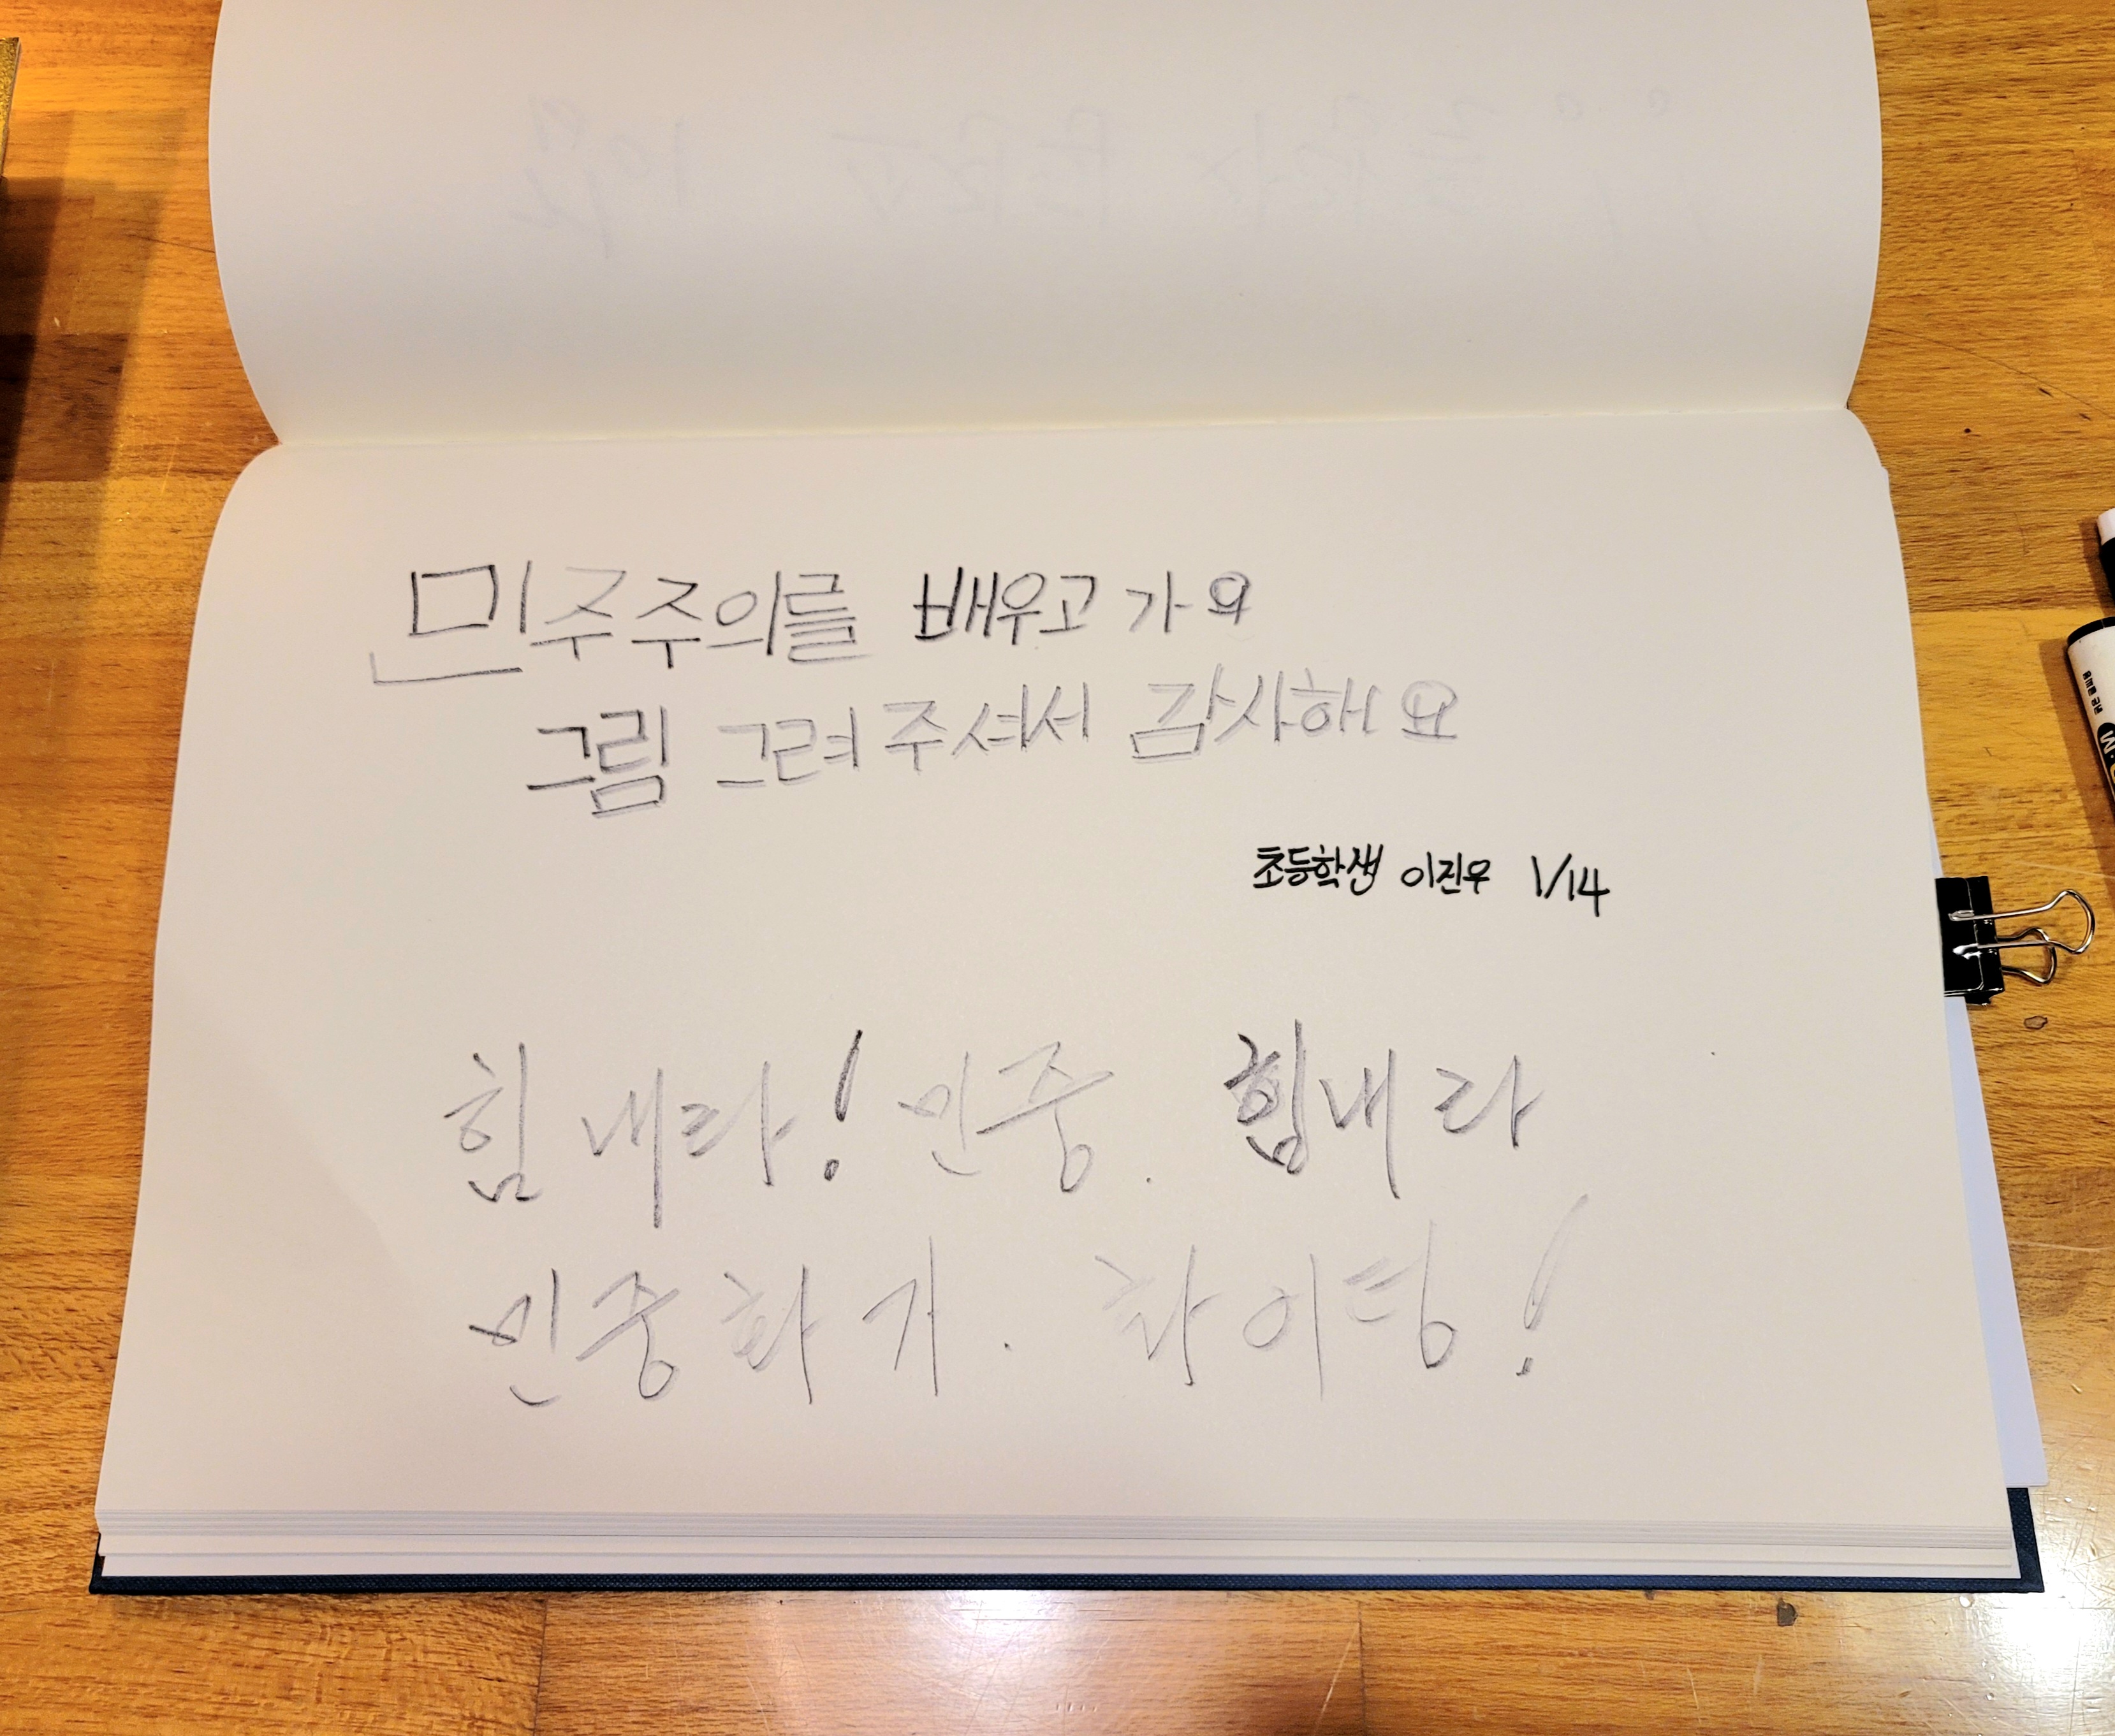 민주주의를 배우고 가요
그림 그려주셔서 감사해요
초등학생 이진우 1/14
힘내라! 민중. 힘내라
민중화가. 화이팅!